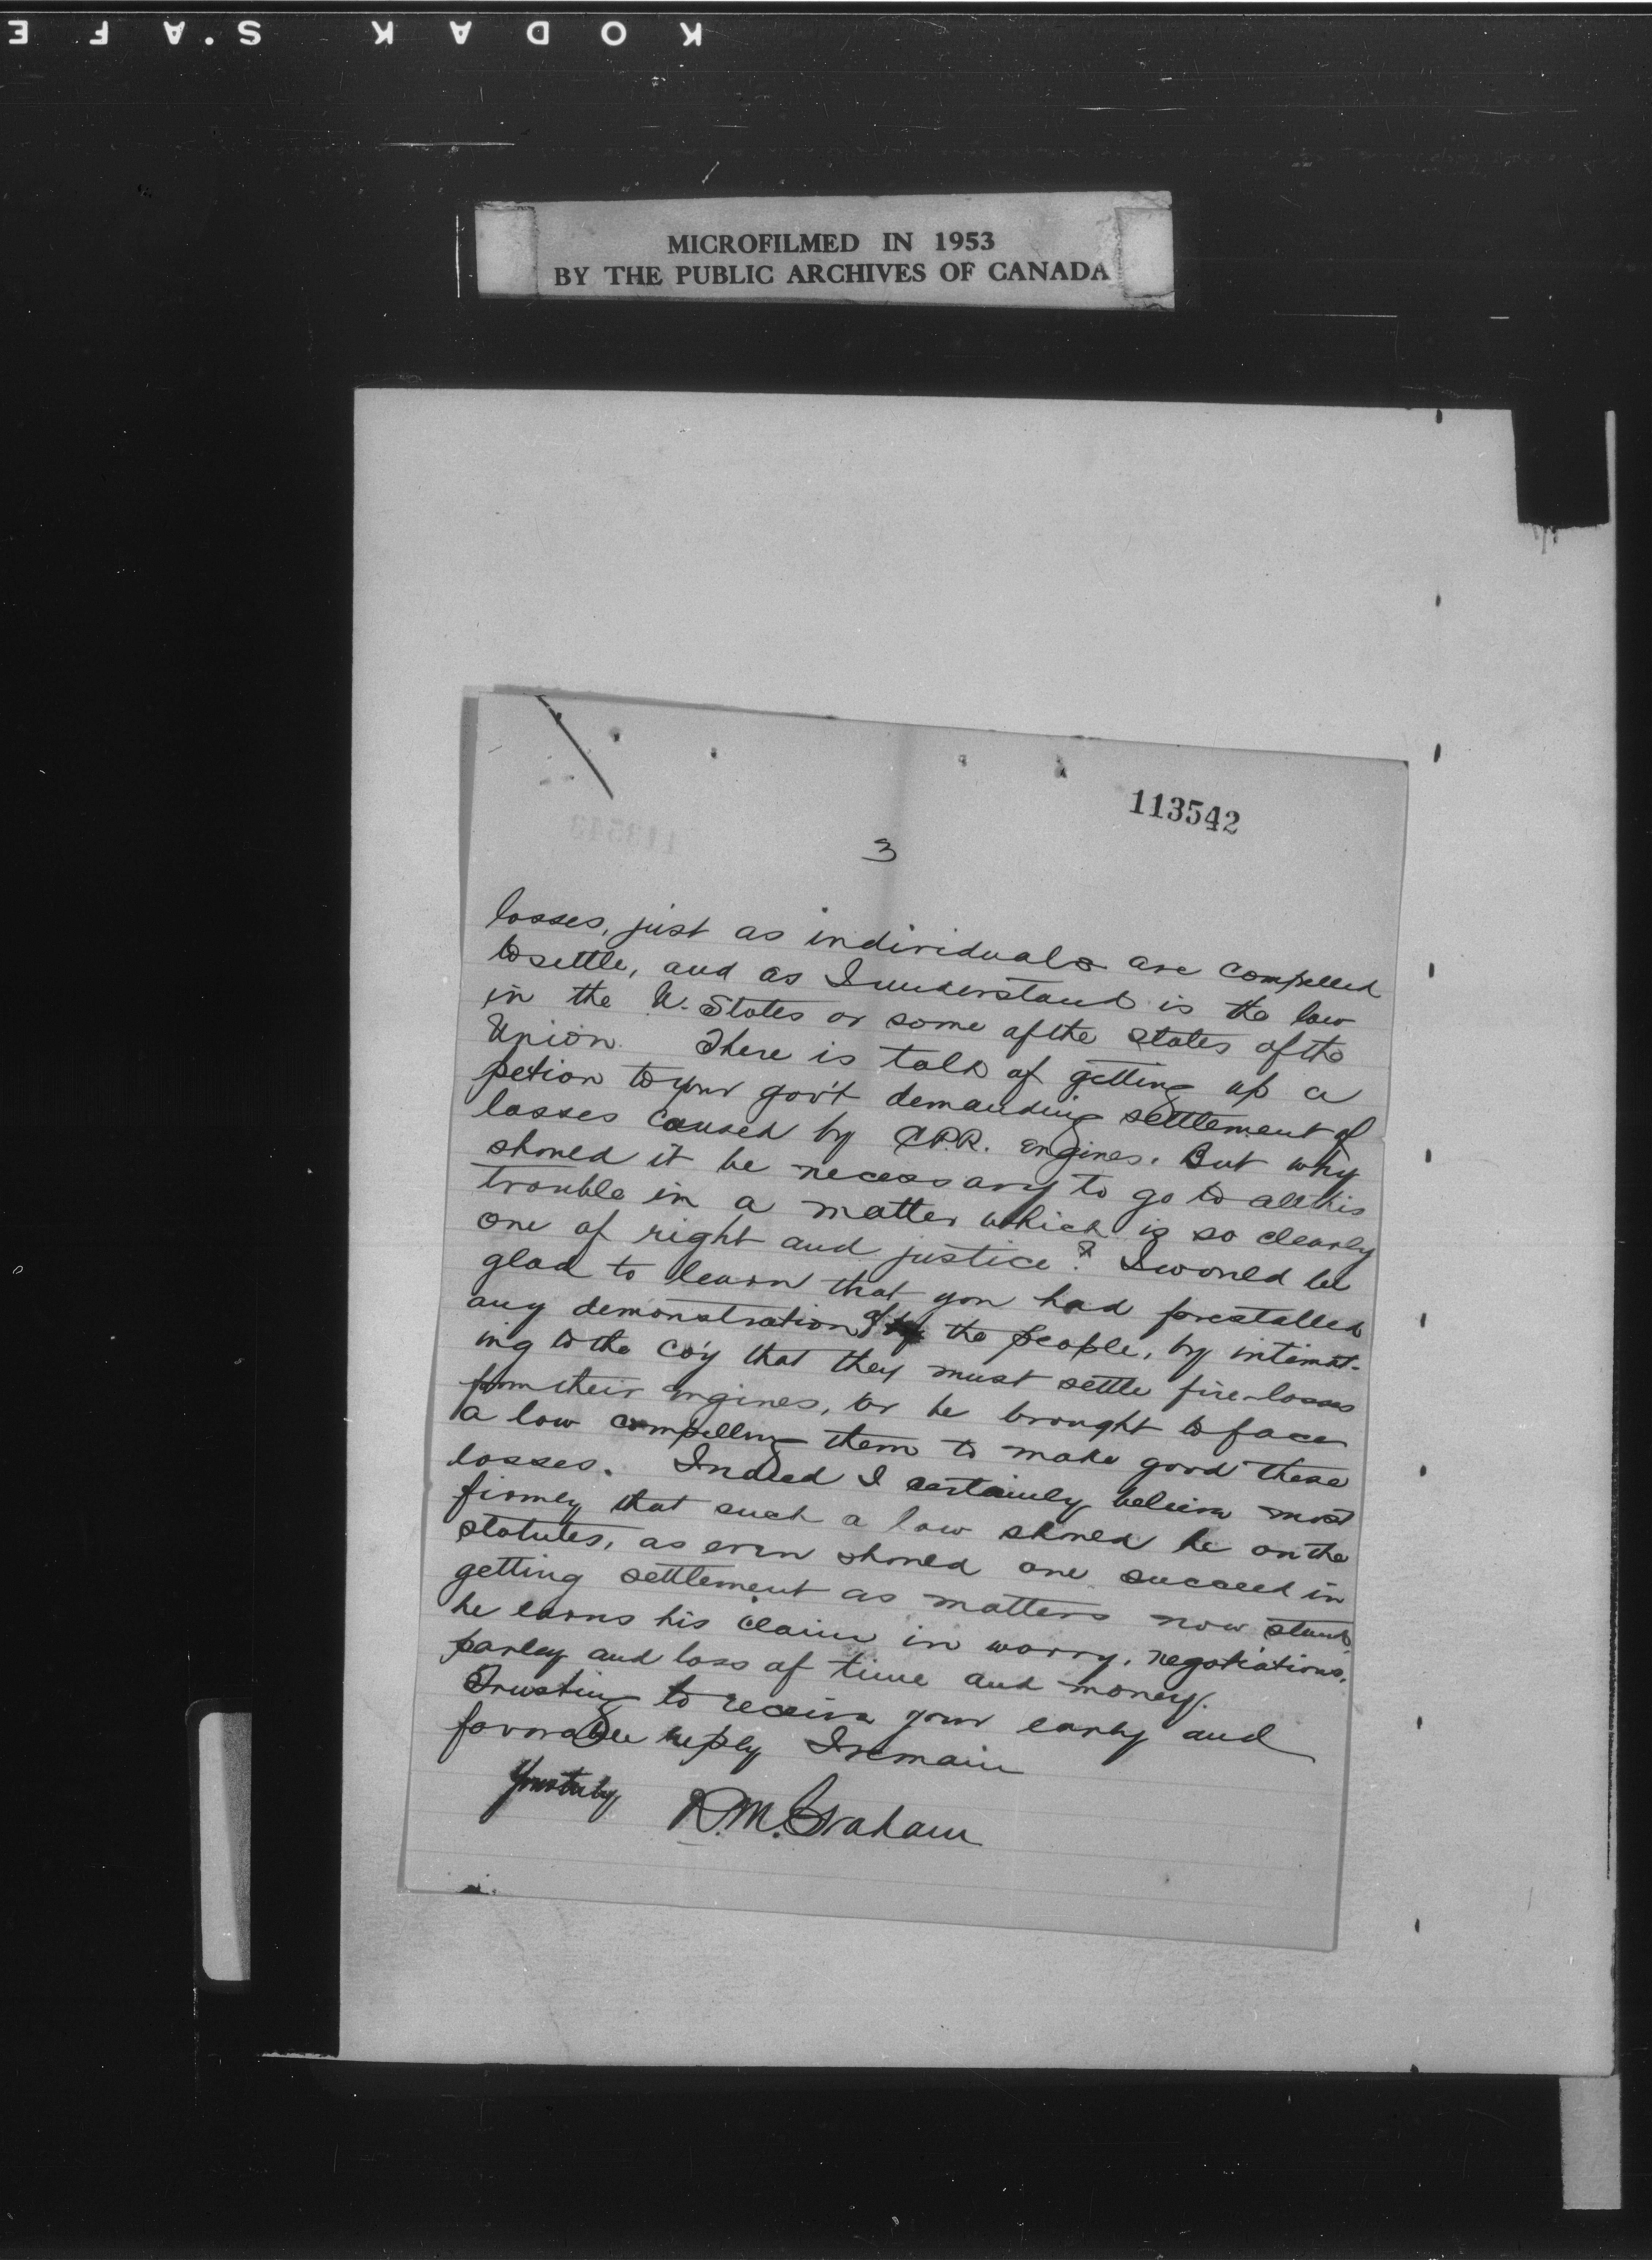 KODAK S.AFE
MICROFILMED IN 1953
BY THE PUBLIC ARCHIVES OF CANADA
113542
3
losses, just as individuals are compelled
to settle, and as I understand is the law
in the U. States or some of the states of the
Union. There is talk of getting up a
petion to your gov't demanding settlement of
losses caused by C.P.R. engines. But why
should it be necessary to go to all this
trouble in a matter which is so clearly
one of right and justice? I would be
glad to learn that you had forestalled
any demonstration of the people, by intimat-
ing to the co'y that they must settle fire-losses
from their engines, or be brought to face
a law compelling them to make good these
losses. Indeed I certainly believe most
firmly that such a law should be on the
statutes, as even should one succeed in
getting settlement as matters now stand,
he earns his claim in worry, negotiations,
parley and loss of time and money.
Trusting to receive your early and
favorable reply I remain
Yours truly
R.M. Graham